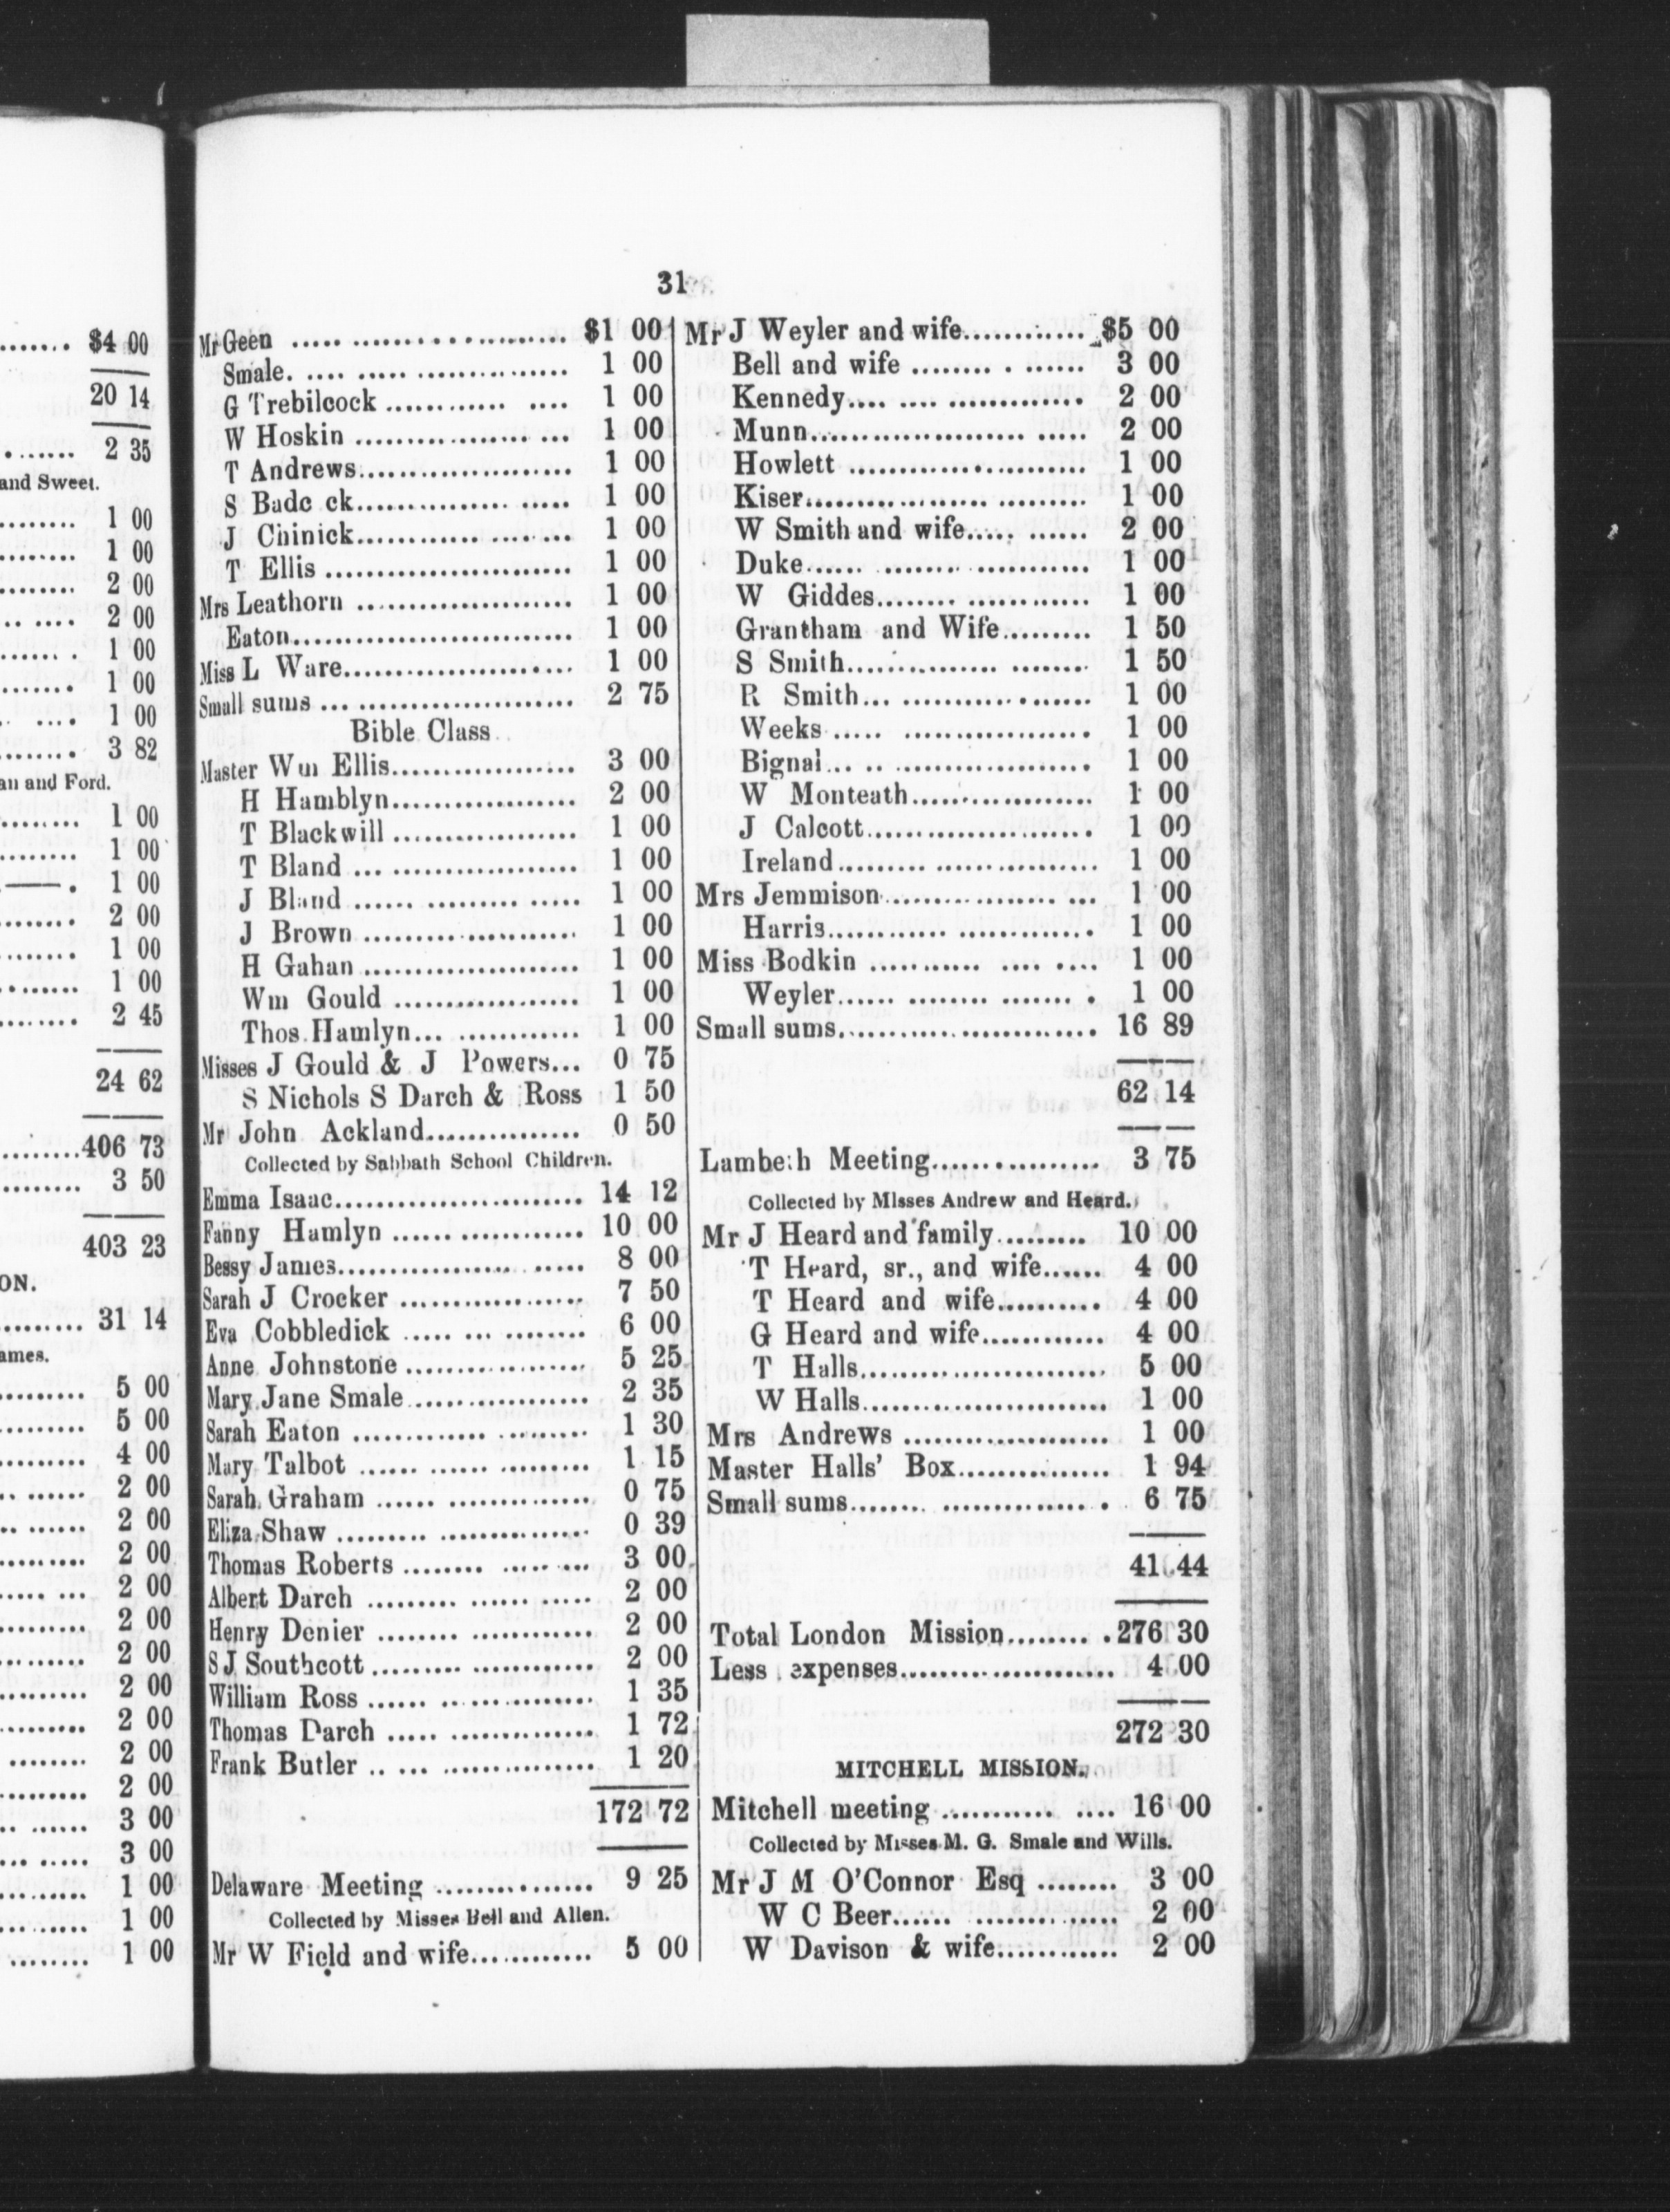 $4 00
20 14
2 35
and Sweet.
1 00
1 00
2 00
2 00
1 00
1 00
1 00
3 82
an and Ford.
1 00
1 00
1 00
2 00
1 00
1 00
2 45
24 62
406 73
3 50
403 23
ON.
31 14
ames.
5 00
5 00
4 00
2 00
2 00
2 00
2 00
2 00
2 00
2 00
2 00
2 00
2 00
3 00
3 00
1 00
1 00
1 00
31
Mr Geen $1 00
Smale. 1 00
G Trebilcock 1 00
W Hoskin 1 00
T Andrews 1 00
S Badc ck 1 00
J Chinick 1 00
T Ellis 1 00
Mrs Leathorn 1 00
Eaton 1 00
Miss L Ware 1 00
Small sums 2 75
Bible Class
Master Wm Ellis 3 00
H Hamblyn 2 00
T Blackwill 1 00
T Bland 1 00
J Bland 1 00
J Brown 1 00
H Gahan 1 00
Wm Gould 1 00
Thos Hamlyn 1 00
Misses J Gould & J Powers... 0 75
S Nichols S Darch & Ross 1 50
Mr John Ackland 0 50
Collected by Sabbath School Children.
Emma Isaac 14 12
Fanny Hamlyn 10 00
Bessy James 8 00
Sarah J Crocker 7 50
Eva Cobbledick 6 00
Anne Johnstone 5 25
Mary Jane Smale 2 35
Sarah Eaton 1 30
Mary Talbot 1 15
Sarah Graham 0 75
Eliza Shaw 0 39
Thomas Roberts 3 00
Albert Darch 2 00
Henry Denier 2 00
S J Southcott 2 00
William Ross 1 35
Thomas Darch 1 72
Frank Butler 1 20
172 72
Delaware Meeting 9 25
Collected by Misses Bell and Allen.
Mr W Field and wife 5 00
Mr J Weyler and wife $5 00
Bell and wife 3 00
Kennedy 2 00
Munn 2 00
Howlett 1 00
Kiser 1 00
W Smith and wife 2 00
Duke 1 00
W Giddes 1 00
Grantham and Wife 1 50
S Smith 1 50
R Smith 1 00
Weeks 1 00
Bignal 1 00
W Monteath 1 00
J Calcott 1 00
Ireland 1 00
Mrs Jemmison 1 00
Harris 1 00
Miss Bodkin 1 00
Weyler 1 00
Small sums 16 89
62 14
Lambeth Meeting 3 75
Collected by Misses Andrew and Heard.
Mr J Heard and family 10 00
T Heard, sr., and wife 4 00
T Heard and wife 4 00
G Heard and wife 4 00
T Halls 5 00
W Halls 1 00
Mrs Andrews 1 00
Master Halls' Box 1 94
Small sums 6 75
41 44
Total London Mission 276 30
Less expenses 4 00
272 30
MITCHELL MISSION.
Mitchell meeting 16 00
Collected by Misses M. G. Smale and Wills.
Mr J M O'Connor Esq 3 00
W C Beer 2 00
W Davison & wife 2 00